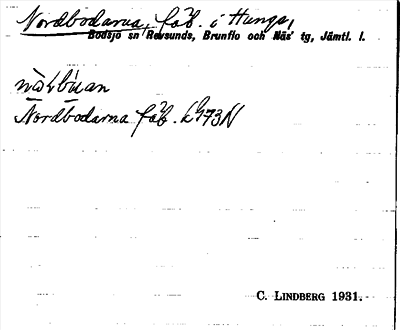 Nordbodarna, fäb. i Hunge,
Bodsjö sn Revsunds, Brunflo och Näs' tg, Jämtl. l.
Nordbodarna fäb.
C. LINDBERG 1931.